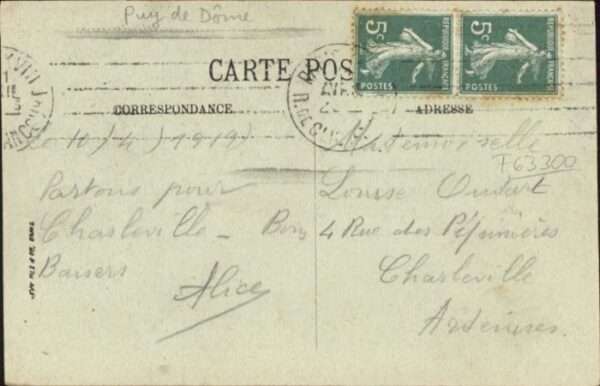 Puy de Dôme
5c
5c
REPUBLIQUE FRANÇAISE
REPUBLIQUE FRANÇAISE
POSTES
POSTES
CARTE POS
CORRESPONDANCE
ADRESSE
Le 10/4/1919
Partons pour
Charleville - Bons
Baisers
Alice
Mademoiselle
F63300
Louise Oudart
4 Rue des Pépinières
Charleville
Ardennes